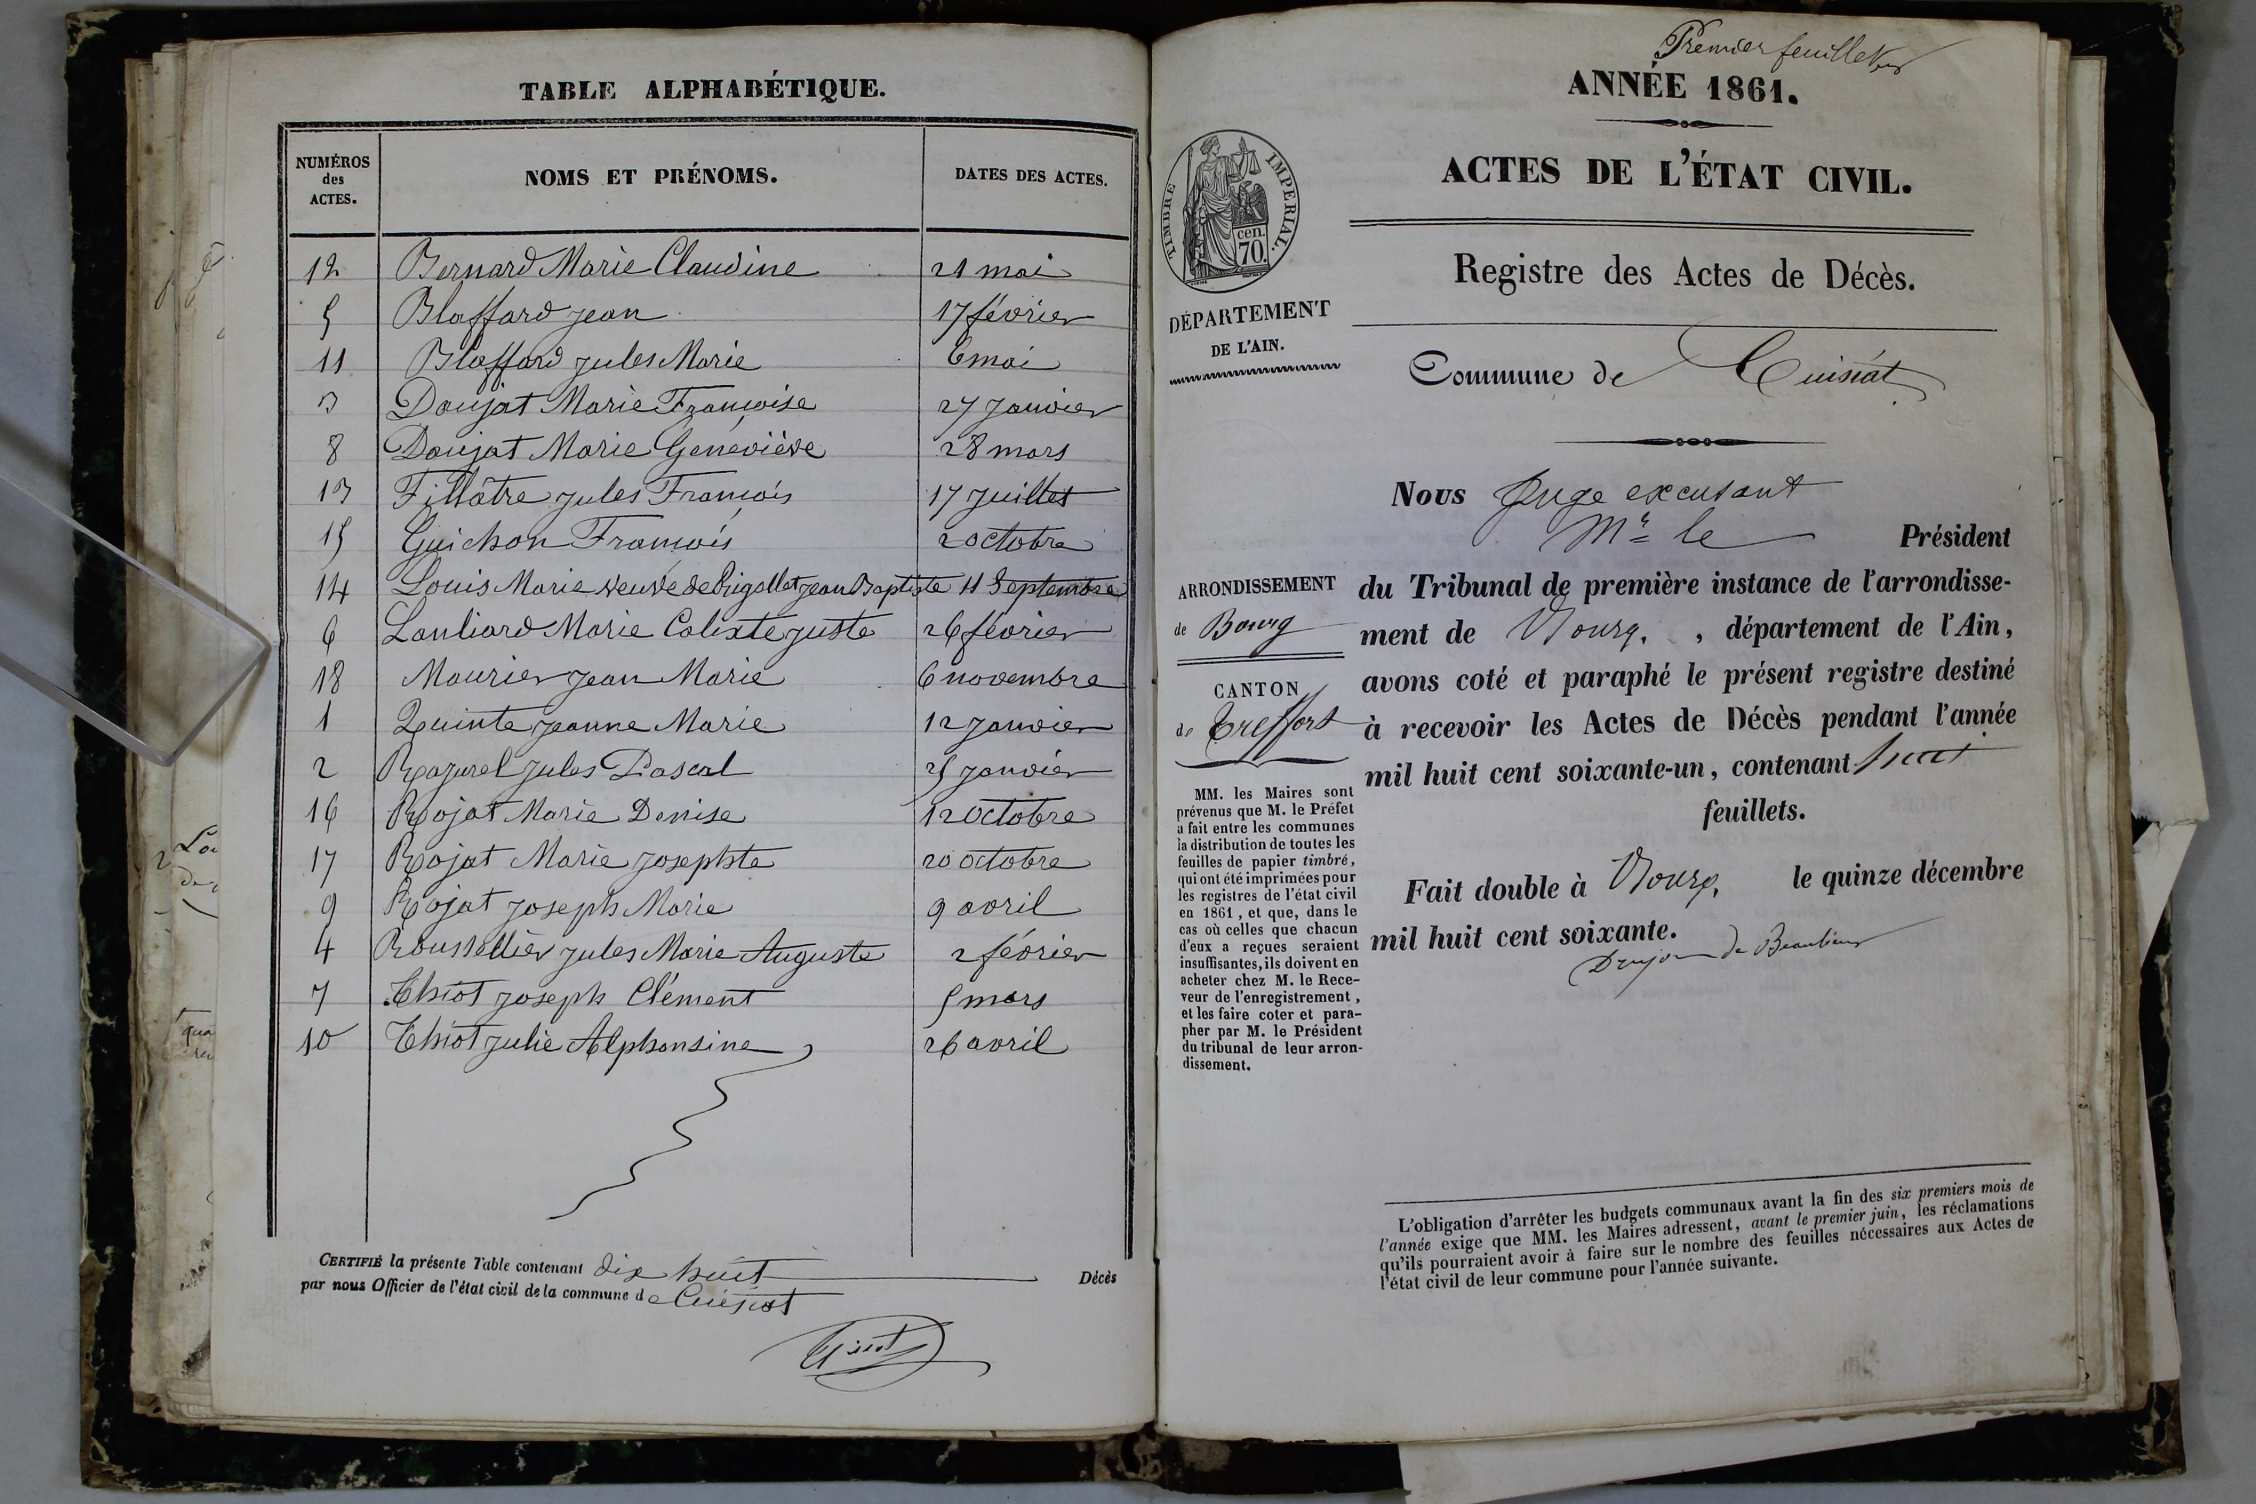 TABLE ALPHABÉTIQUE.
NUMÉROS des ACTES. NOMS ET PRÉNOMS. DATES DES ACTES.
12 Bernard Marie Claudine 21 mai
5 Blaffard Jean 17 février
11 Blaffard Jules Marie 6 mai
3 Doujat Marie Françoise 27 Janvier
8 Doujat Marie Geneviève 28 mars
13 Fillâtre Jules François 17 Juillet
15 Guichon François 2 octobre
14 Louis Marie veuve de Rigollet Jean Baptiste 11 Septembre
6 Louliard Marie Calixte Juste 26 février
18 Maurier Jean Marie 6 novembre
1 Quinte Jeanne Marie 12 Janvier
2 Razurel Jules Pascal 25 Janvier
16 Rojat Marie Denise 12 Octobre
17 Rojat Marie Josephte 20 octobre
9 Rojat Joseph Marie 9 avril
4 Roussellier Jules Marie Auguste 2 février
7 Thiot Joseph Clément 5 mars
10 Thiot Julie Alphonsine 26 avril
CERTIFIÉ la présente Table contenant dix huit Décès
par nous Officier de l'état civil de la commune de Cuisiat
Premier feuillet
ANNÉE 1861.
ACTES DE L'ÉTAT CIVIL.
TIMBRE IMPERIAL.
cen.
70.
Registre des Actes de Décès.
DÉPARTEMENT
DE L'AIN.
Commune de Cuisiat
Nous Juge excusant
Mr le Président
ARRONDISSEMENT
de Bourg
du Tribunal de première instance de l'arrondisse-
ment de Bourg. , département de l'Ain,
avons coté et paraphé le présent registre destiné
à recevoir les Actes de Décès pendant l'année
mil huit cent soixante-un, contenant huit
feuillets.
CANTON
de Treffort
MM. les Maires sont
prévenus que M. le Préfet
a fait entre les communes
la distribution de toutes les
feuilles de papier timbré,
qui ont été imprimées pour
les registres de l'état civil
en 1861, et que, dans le
cas où celles que chacun
d'eux a reçues seraient
insuffisantes, ils doivent en
acheter chez M. le Rece-
veur de l'enregistrement,
et les faire coter et para-
pher par M. le Président
du tribunal de leur arron-
dissement.
Fait double à Bourg, le quinze décembre
mil huit cent soixante.
Dujon de Beaulieu
L'obligation d'arrêter les budgets communaux avant la fin des six premiers mois de
l'année exige que MM. les Maires adressent, avant le premier juin, les réclamations
qu'ils pourraient avoir à faire sur le nombre des feuilles nécessaires aux Actes de
l'état civil de leur commune pour l'année suivante.